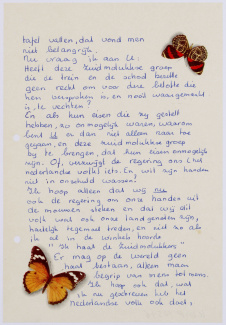 tafel vallen, dat vond men
niet belangrijk.
Nu vraag ik aan U:
Heeft deze Zuidmolukse groep
die de trein en de school bezette
geen recht om voor die belofte die
hen gegeven is, en nooit waargemaakt
is, te vechten?
En als hun eisen die zij gesteld
hebben, zo onmogelijk waren, waarom
bent U er dan niet alleen naar toe
gegaan, en deze Zuidmolukse groep
bij te brengen, dat hun eisen onmogelijk
zijn. Of, vraagt de regering ons (het
nederlandse volk) iets. En, wil zijn handen
niet in onschuld wassen!
Ik hoop alleen dat wij nu
ook de regering om onze handen uit
de mouwen steken en dat wij dit
volk wat ook onze landgenoten zijn,
hartelijk tegemoet treden, en niet zo als
ik al in de winkels hoorde
" ik haat de Zuidmolukkers "
Er mag op de wereld geen
haat bestaan, alleen maar
begrip van mens tot mens.
Ik hoop ook dat, wat
ik nu geschreven heb het
Nederlandse volk ook doet,